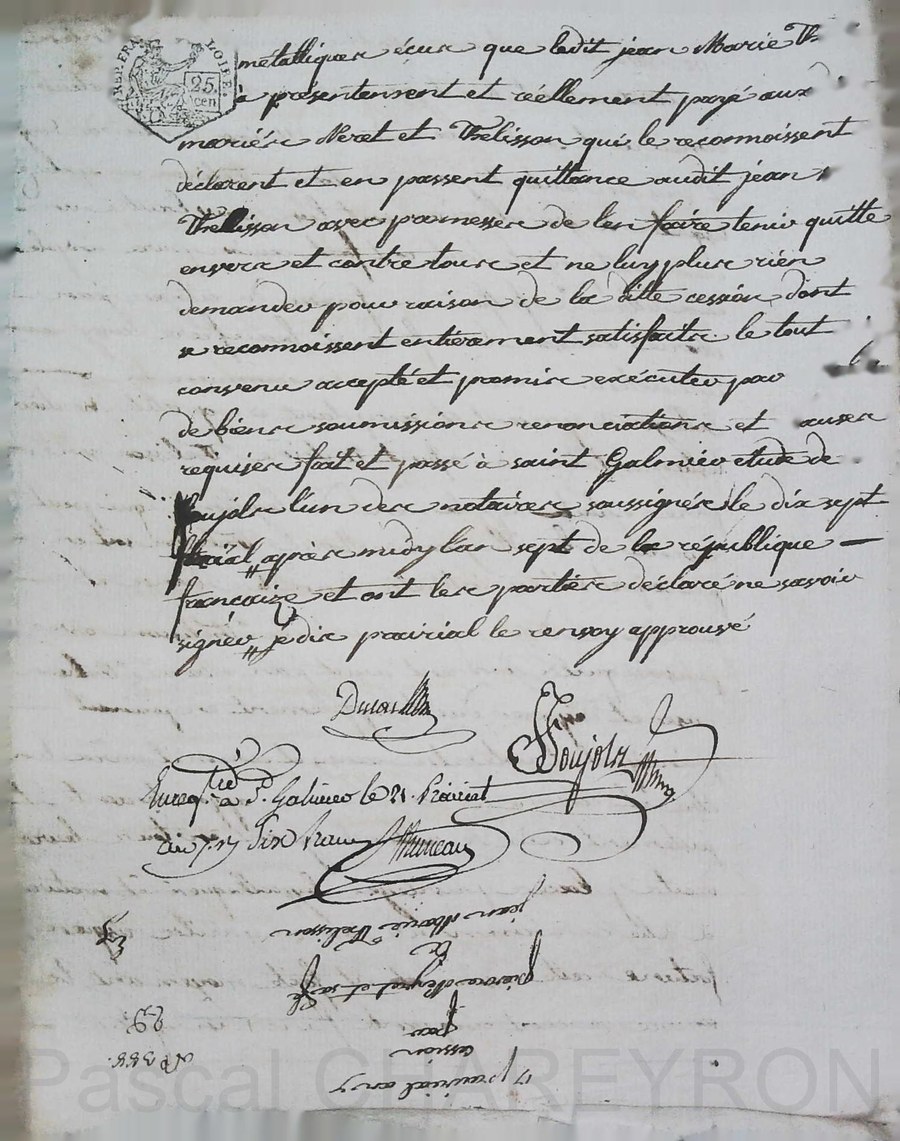 REP. FRA
LOIRE
25.
cen
métalliques écus que ledit jean Marie Th-
à présentement et réellement payé aux
mariés Neret et Thelisson qui le reconnoissent
déclarent et en passent quittance audit jean
Thellisson avec promesses de l'en faire tenir quitte
envers et contre tous et ne luy plus rien
demander pour raison de la ditte cession dont
se reconnoissent entierement satisfaits le tout
convenu accepté et promis exécuter par
de biens soumissions renonciations et causes
requises fait et passé à saint Galmier etude de
Poujols l'un des notaires soussignés le dix sept
après midy l'an sept de la république —
françaize et ont les parties déclaré ne savoir
signer je dis prairial le renvoy approuvé
Ducas
Poujols
Enreg.tré à S.t Galmier le 21. Prairial
an 7. dix francs
jean Marie Thelisson
à
pierre Neyret et sa f.e
par
cession
17 prairial an 7
29
N.o 388.
Pascal CHAREYRON